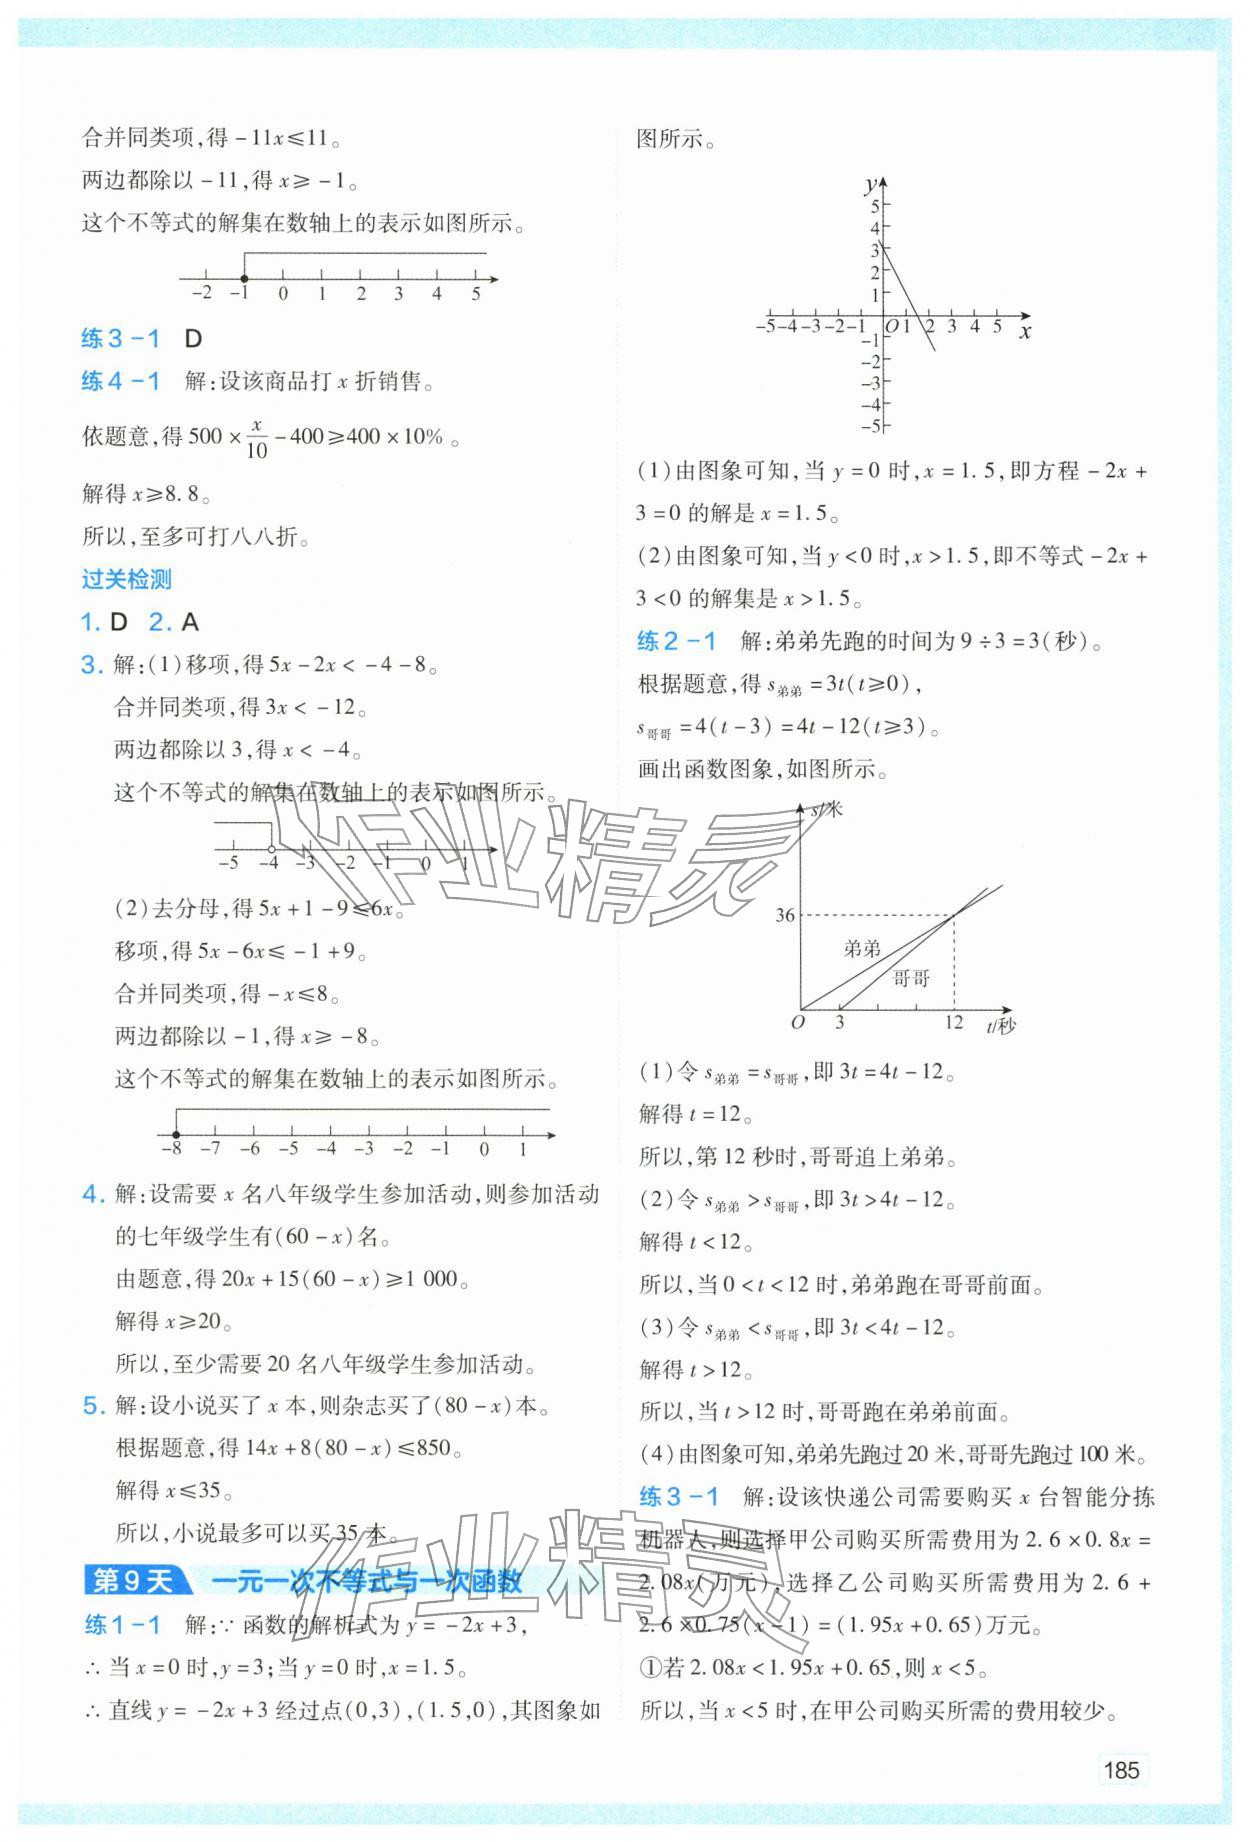 合并同类项,得-11x≤11。
两边都除以-11,得x≥-1。
这个不等式的解集在数轴上的表示如图所示。
-2 -1 0 1 2 3 4 5
练3-1 D
练4-1 解:设该商品打x折销售。
依题意,得500×x/10-400≥400×10%。
解得x≥8.8。
所以,至多可打八八折。
过关检测
1. D 2. A
3. 解:(1)移项,得5x-2x<-4-8。
合并同类项,得3x<-12。
两边都除以3,得x<-4。
这个不等式的解集在数轴上的表示如图所示。
-5 -4 -3 -2 -1 0 1
(2)去分母,得5x+1-9≤6x。
移项,得5x-6x≤-1+9。
合并同类项,得-x≤8。
两边都除以-1,得x≥-8。
这个不等式的解集在数轴上的表示如图所示。
-8 -7 -6 -5 -4 -3 -2 -1 0 1
4. 解:设需要x名八年级学生参加活动,则参加活动
的七年级学生有(60-x)名。
由题意,得20x+15(60-x)≥1 000。
解得x≥20。
所以,至少需要20名八年级学生参加活动。
5. 解:设小说买了x本,则杂志买了(80-x)本。
根据题意,得14x+8(80-x)≤850。
解得x≤35。
所以,小说最多可以买35本。
第9天 一元一次不等式与一次函数
练1-1 解:∵函数的解析式为y=-2x+3,
∴当x=0时,y=3;当y=0时,x=1.5。
∴直线y=-2x+3经过点(0,3),(1.5,0),其图象如
图所示。
y
5
4
3
2
1
-5-4-3-2-1 O 1 2 3 4 5 x
-1
-2
-3
-4
-5
(1)由图象可知,当y=0时,x=1.5,即方程-2x+
3=0的解是x=1.5。
(2)由图象可知,当y<0时,x>1.5,即不等式-2x+
3<0的解集是x>1.5。
练2-1 解:弟弟先跑的时间为9÷3=3(秒)。
根据题意,得s弟弟=3t(t≥0),
s哥哥=4(t-3)=4t-12(t≥3)。
画出函数图象,如图所示。
s/米
36
弟弟
哥哥
O 3 12 t/秒
(1)令s弟弟=s哥哥,即3t=4t-12。
解得t=12。
所以,第12秒时,哥哥追上弟弟。
(2)令s弟弟>s哥哥,即3t>4t-12。
解得t<12。
所以,当0<t<12时,弟弟跑在哥哥前面。
(3)令s弟弟<s哥哥,即3t<4t-12。
解得t>12。
所以,当t>12时,哥哥跑在弟弟前面。
(4)由图象可知,弟弟先跑过20米,哥哥先跑过100米。
练3-1 解:设该快递公司需要购买x台智能分拣
机器人,则选择甲公司购买所需费用为2.6×0.8x=
2.08x(万元),选择乙公司购买所需费用为2.6+
2.6×0.75(x-1)=(1.95x+0.65)万元。
①若2.08x<1.95x+0.65,则x<5。
所以,当x<5时,在甲公司购买所需的费用较少。
185
作业精灵
作业精灵